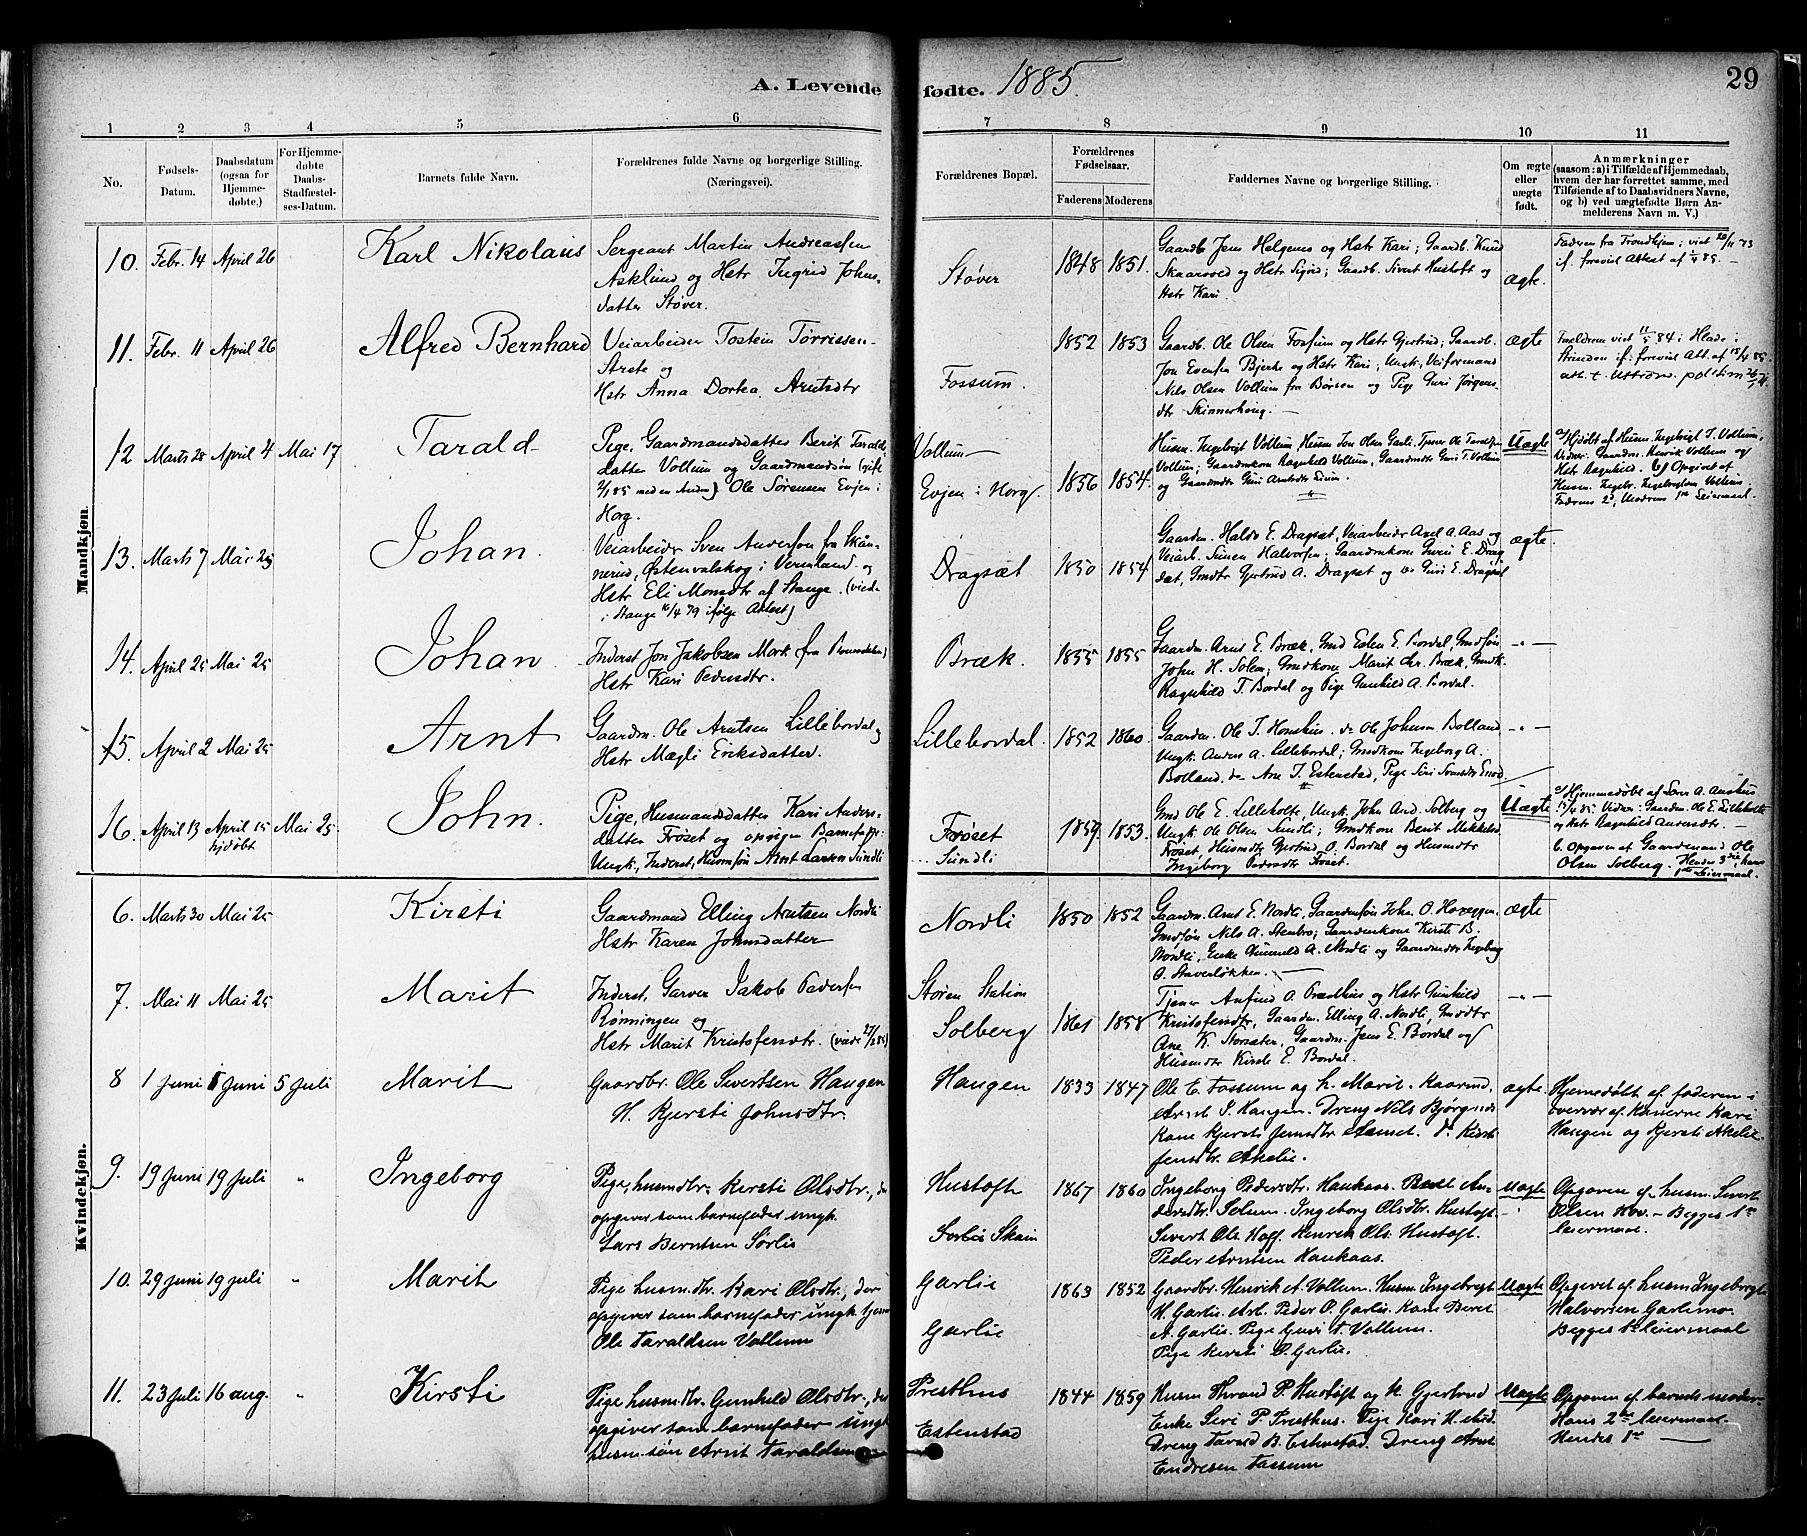 A. Levende
fødte. 1885.
29
1 2 3 4 5 6 7 8 9 10 11
No.
Fødsels-
Datum.
Daabsdatum
(ogsaa for
Hjemme-
døbte.)
For Hjemme-
døbte
Daabs-
Stadfæstel-
ses-Datum.
Barnets fulde Navn.
Forældrenes fulde Navne og borgerlige Stilling.
(Næringsvei).
Forældrenes Bopæl.
Forældrenes
Fødselsaar.
Faderens Moderens
Faddernes Navne og borgerlige Stilling.
Om ægte
eller
uægte
født.
Anmærkninger
(saasom: a) i Tilfælde af Hjemmedaab,
hvem der har forrettet samme, med
Tilføiende af to Daabsvidners Navne,
og b) ved uægtefødte Børn An-
melderens Navn m. V.)
Mandkjøn.
10. Febr. 14 April 26
Karl Nikolaus
Sergeant Martin Andreassen
Asklund og Hstr Ingrid Johns-
datter Støver.
Støver
1848 1851.
Gaardb Jens Helgenes og Hstr Kari; Gaardb. Knud
Skaarvold og Hstr Sigrid; Gaardb. Sivert Hustoft og
Hstr Kari.
ægte.
Faderen fra Trondhjem; viet 20/11 73
if. forevist Attest af 1/4 85. —
11. Febr. 11 April 26
Alfred Bernhard
Veiarbeider Tostein Tørrissen
Strete og
Hstr Anna Dortea Arntsdtr
Fossum.
1852 1853
Gaardb. Ole Olsen Fossum og Hstr Gjertrud; Gaardb.
Jon Evensen Bjerke og Hstr Kari; Ungk. Veiformand
Nils Olsen Vollum fra Børsen og Pige Guri Jørgens
dtr Skinnerhaug. —
ægte
Forældrene viet 11/5 84 i Hlade
Strinden if. forevist Att. af 15/4 85
12 Marts 28 April 4 Mai 17
Tarald
Pige, Gaardmandsdatter Berit Taralds
datter Vollum og Gaardmandssøn (gift
2/1 85 med en Anden) Ole Sørensen Evjen i
Horg.
Vollum—
Evjen i Horg
1856 1854.
Husm. Ingebrigt Vollum Husm Jon Olsen Garli, Tjener Ole Taraldsen
Vollum; Gaardmkone Ragnhild Vollum, Gaardmdtr Guri T. Vollum
og Gaardmdtr Guri Arntsdtr
Uægte
a) Hjdøbt af Husm. Ingebrigt T. Vollum,
Vidner: Gaardm. Henrik Vollum og
Hstr Ragnhild. b) Opgivet af
Husm. Ingebr. Ingebrigtsen Vollum;
Faderens 2d, Moderens 1ste Leiermaal.
13. Marts 7 Mai 25
Johan.
Veiarbeider Sven Andersson fra Skån-
nerud, Østenvalskog i Vermland og
Hstr Eli Monsdtr af Stange. (viede
i Stange 16/4 79 ifølge Attest)
Dragsæt
1850 1854
Gaardm. Haldo E. Dragsæt, Veiarbeider Axel A. Aas og
Veiarb. Simen Halvorsen; Gaardmkone Guri E. Drag
sæt, Gmdtr Gjertrud A. Dragset og do Guri E. Dragset
ægte.
14. April 25 Mai 25
Johan
Inderst Jon Jakobsen Mork (fra
Hstr Kari Pedersdtr.
Bræk.
1855 1855
Gaardm. Arnt E. Bræk, Gmd Esten E. Bordal, Gmdsøn
John H. Solem; Gmdkone Marit Chr. Bræk, Gmdk.
Ragnhild T. Bordal og Pige Gunhild A. Bordal.
-"-
15. April 2 Mai 25
Arnt
Gaardm. Ole Arntsen Lillebordal og
Hstr Magli Eriksdatter.
Lillebordal.
1852 1860.
Gaardm. Ole T. Honshus. do Ole Johnsen Bolland
Ungk. Anders A. Lillebordal; Gmdkone Ingeborg A.
Bolland, do Ane I. Estenstad, Pige Siri
-"-
16. April 13 April 15 hjdøbt Mai 25.
John.
Pige, Husmandsdatter Kari Anders-
datter Frøset og opgiven Barnefader:
Ungk., Inderst, Husmsøn Arnt Larsen Sundli
Frøset
Sundli
1859. 1853.
Gmd Ole E. Lilleholte, Ungk. John And. Solberg og
Ungk. Ole Olsen Sundli; Gmdkone Berit Mikkelsd
Frøset, Husmdtr Gjertrud O. Bordal og Husmdtr
Ingeborg Pedersdtr Frøset.
Uægte
a) Hjemmedøbt af Lærer A. Aunhus
15/4 85. Vidner: Gaardm. Ole E. Lilleholte
og Hstr Ragnhild Andersdtr. —
b. Opgiven af Gaardmand Ole
Olsen Solberg.
Kvindekjøn.
6. Marts 30 Mai 25
Kirsti
Gaardmand Elling Arntsen Nordli
Hstr Karen Johnsdatter
Nordli
1850 1852
Gaardm. Arnt E. Nordli, Gaardmsøn John O. Hoveggen
Gmdsøn Nils A. Stenbro; Gaardmkone Kirsti B.
Nordli, Enke Gunnild A. Nordli og Gaardmdtr Ingeborg
O. Staverløkken. —
ægte
7. Mai 11 Mai 25
Marit
Inderst, Garver Jakob Pedersen
Rønningen og
Hstr Marit Kristofersdtr. (viede 27/2 85)
Støren Station
Solberg
1861 1858
Tjener Anfind O. Prædthus og Hstr Gunhild
Kristofersdtr, Gaardm. Elling A. Nordli, Gmdtr
Ane K. Storsæter, Gaardm. Jens E. Bordal og
Husmdtr Kirsti E. Bordal.
-"-
8 1 Juni Juni 5 Juli
Marit
Gaardbr. Ole Sivertsen Haugen
H. Kjersti Johnsdtr.
Haugen
1833 1847
Ole E. Fossum og h. Marit. Kaarind.
Arnt S. Haugen. Dreng Nils Bjørgnes
Kone Kjersti Jensdtr d. Kirst
Jensdtr. Akelie.
ægte.
Hjemdøbt af faderen i
overvær af Konerne Kari
Haugen og Kjersti Akelie.
9. 19 Juni 19 Juli "
Ingeborg
Pige, husmdtr. Kirsti Olsdtr, der
opgiver som barnefader ungk.
Lars Berntsen Sørlis
Hustoft
Sørlis Skain
1867 1860
Ingeborg Pedersdtr. Haukaas. Beret An-
dersdtr Solum. Ingeborg Olsdtr. Hustoft.
Sivert Ols. Hoff. Henrik Ols. Hustoft.
Peder Arntsen Haukaas.
Uægte
Opgiven af husm. Sivert
Olsen Hov. – Begges 1ste
leiermaal.
10. 29 Juni 19 Juli "
Marit
Pige husmdtr. Kari Olsdtr, der
opgiver som barnefader ungk tjener
Ole Taraldsen Vollum
Garlie
Garlie
1863 1852
Gaardbr. Henrik A. Vollum. Husm Ingebregt
H. Garlie. Arb. Peder O. Garlie. Kone Beret
A. Garlie. Pige Guri T. Vollum.
Pige Kersti O. Garlie.
Uægte
Opgivet af husm Ingebregt
Halvorsen Garlimo.
Begges 1ste leiermaal
11. 23 Juli 16 aug. "
Kirsti
Pige husmdtr. Gunhild Olsdtr, der
opgiver som barnefader ungk
husm. søn Arnt Taraldsen
Presthus
Estenstad
1844 1859
Husm Thrond P. Hustoft og K. Gjertrud
Enke Siri P. Presthus. Pige Kari
Dreng Tarald B. Estenstad. Dreng Arnt
Endresen Fossum
Uægte
Opgiven af barnets moder.
Hans 2det leiermaal.
Hendes 1ste —